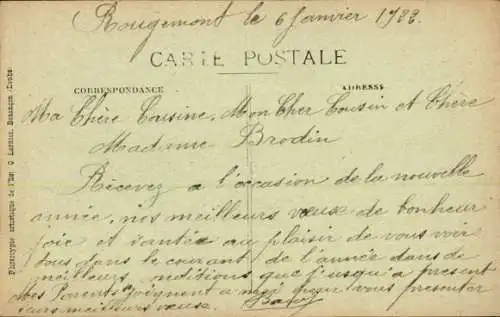 Rougemont le 6 Janvier 1922.
CARTE POSTALE
CORRESPONDANCE
ADRESSE
Ma Chère Cousine, Mon Cher Cousin et Chère
Madame Brodin
Recevez a l'occasion de la nouvelle
année, nos meilleurs vœux de bonheur
joie et santée au plaisir de vous voir
tous dans le courant de l'année dans de
meilleurs conditions que jusqu'a present
Mes Parents se joignent a moi pour vous presenter
leurs meilleurs vœux.
Phototypie artistique de l'Est C. Lardier, Besançon (Doubs)